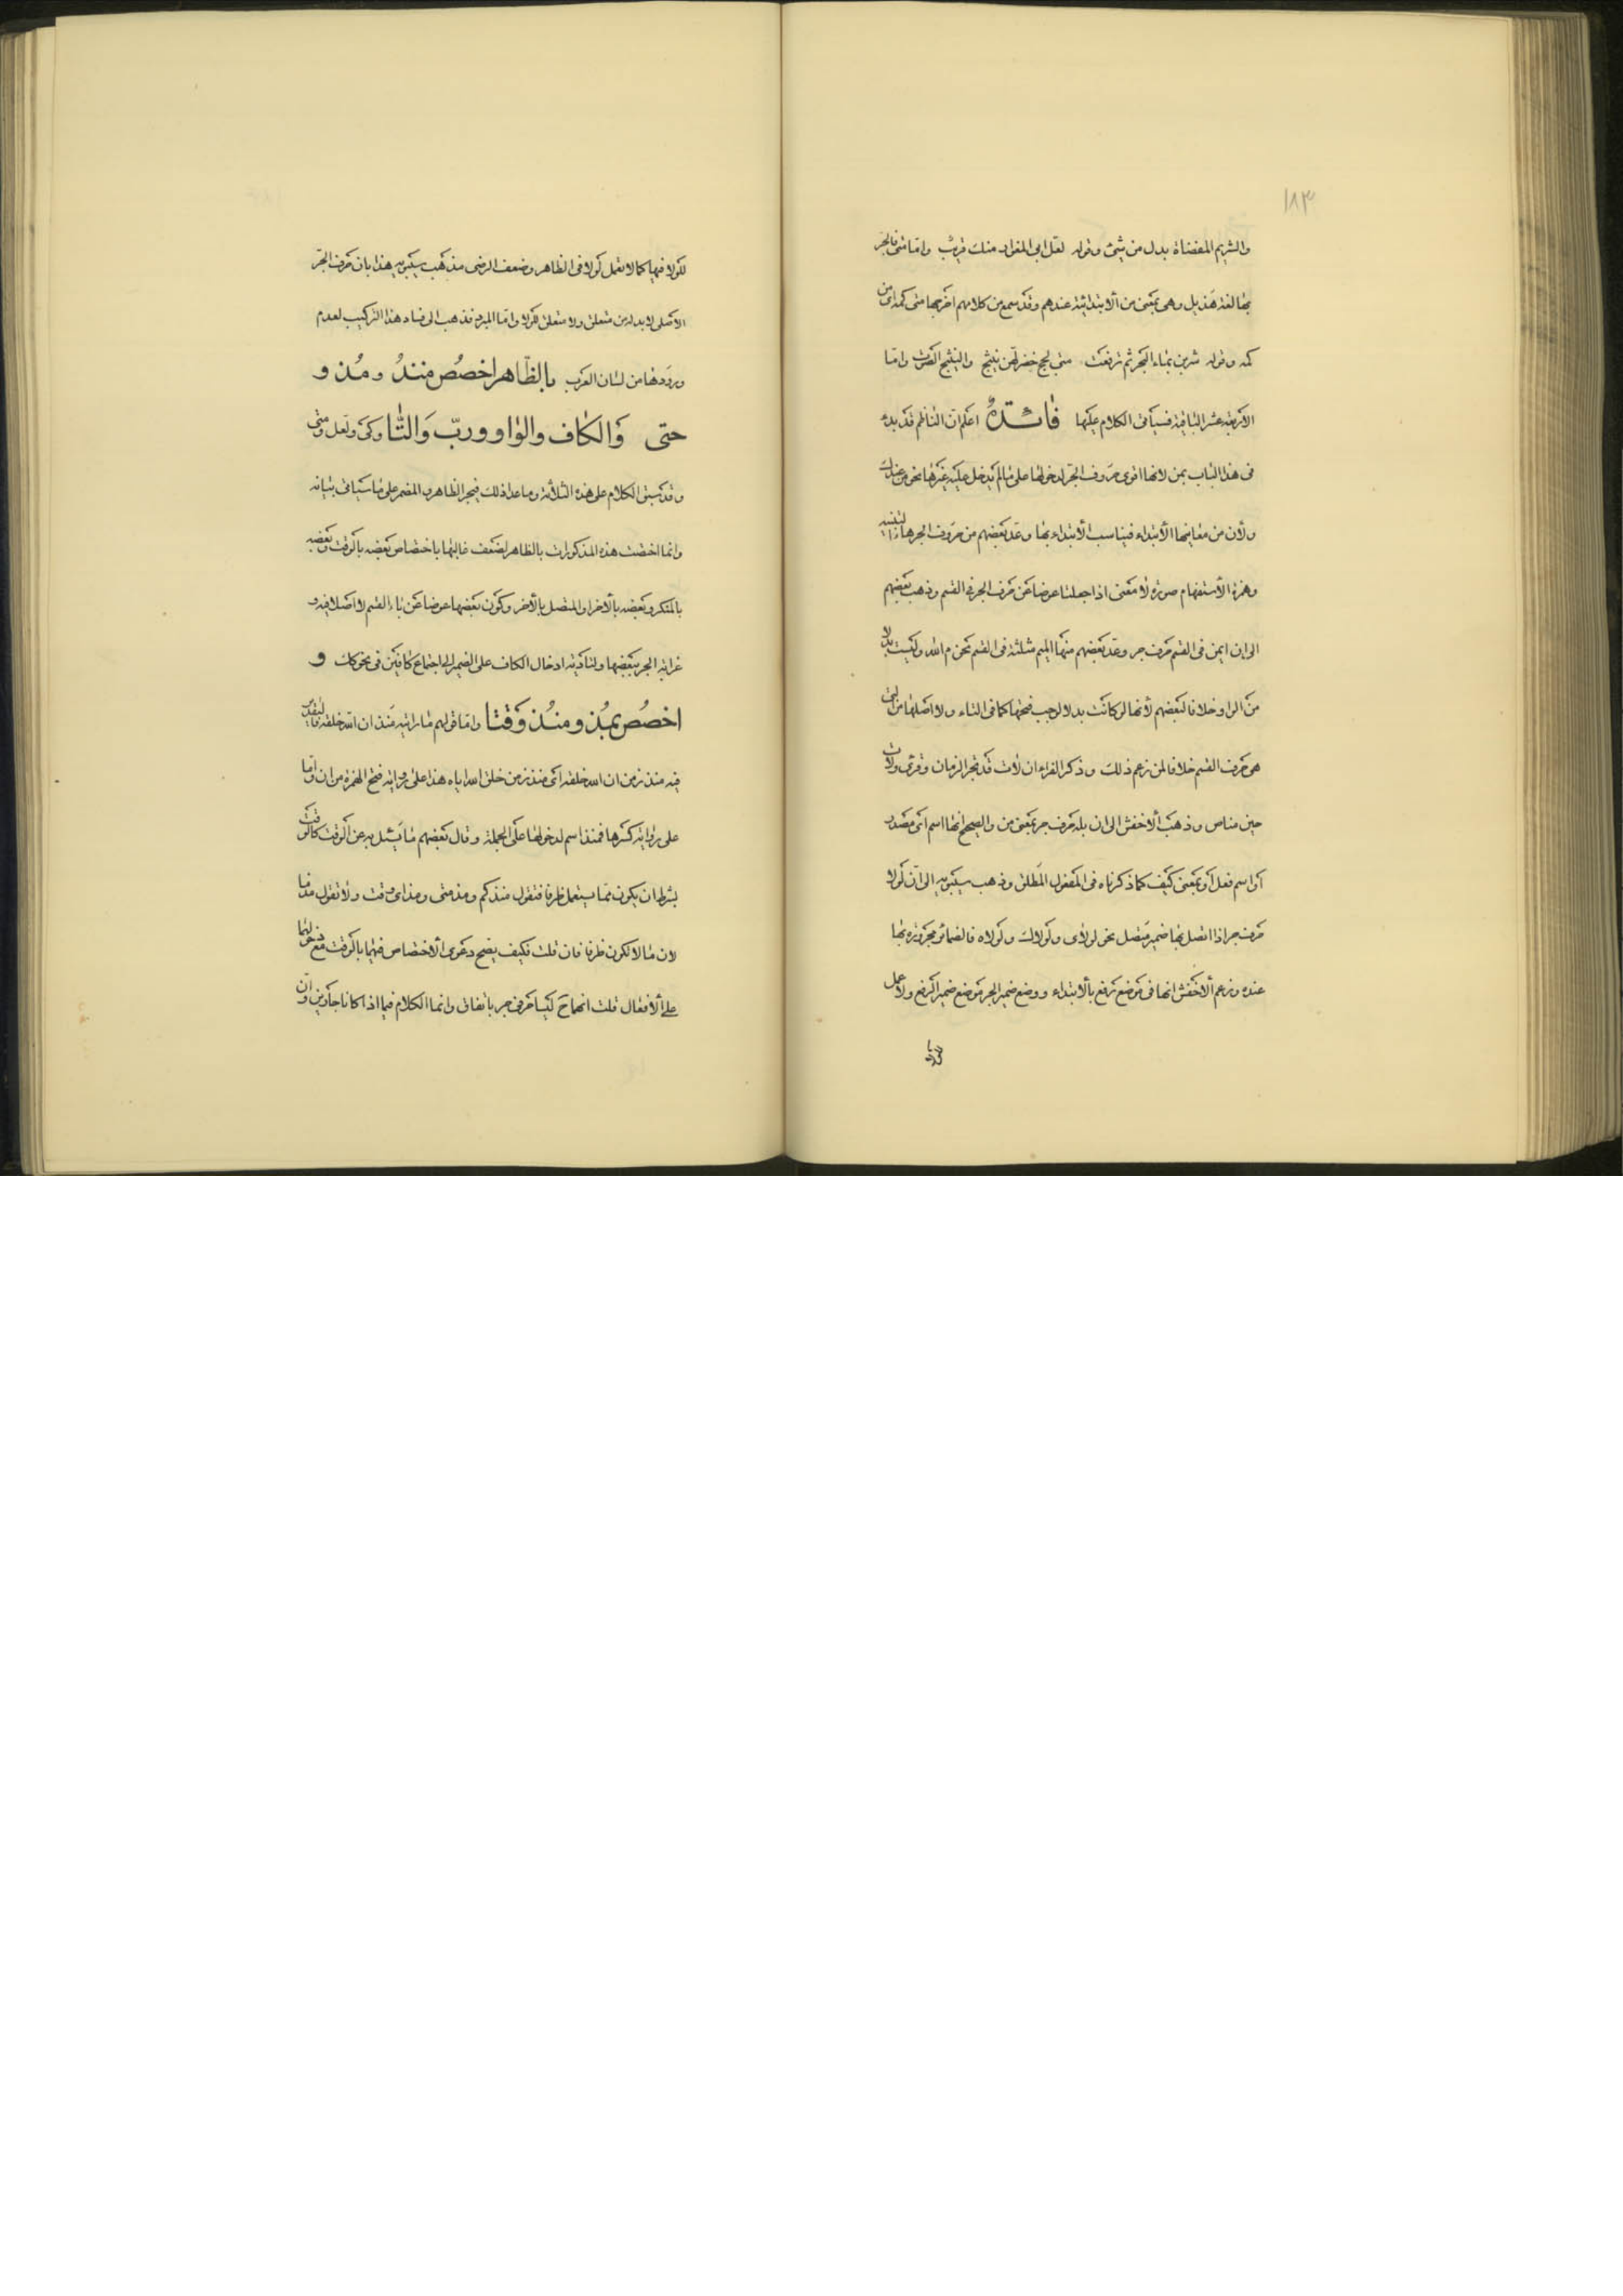 ١٨٣
والشريم المفضاة بدل من شيئ وقوله لعل ابى المغوار منك قريب واما متى فالجر
بها لغة هذيل وهى بمعنى من الابتدائية عندهم وقد سمع من كلامهم اخرجها متى كمه اى من
كمه وقوله شربن بماء البحر ثم ترفعت متى لجج خضر لهن نئيج والنئيج الصوت واما
الاربعة عشر الباقية فسيأتى الكلام عليها فائدة اعلم ان الناظم قد بدء
فى هذا الباب بمن لانها اقوى حروف الجر لدخولها على ما لم يدخل عليه غيرها نحو من عندك
ولأن من معانيها الابتداء فيناسب الابتداء بها وعد بعضهم من حروف الجر هاء التنبيه
وهمزة الاستفهام صورة لا معنى اذا جعلتا عوضا عن حرف الجر فى القسم وذهب بعضهم
الى ان ايمن فى القسم حرف جر وعد بعضهم منها الميم مثلثة فى القسم نحو م الله وليست بدلا
من الواو خلافا لبعضهم لأنها لو كانت بدلا لوجب فتحها كما فى التاء ولا اصلها من التى
هى حرف القسم خلافا لمن زعم ذلك وذكر الفراء ان لات قد تجر الزمان وقرئ ولات
حين مناص وذهب الاخفش الى ان بله حرف جر بمعنى من والصحيح انها اسم اى مصدر
او اسم فعل او بمعنى كيف كما ذكرناه فى المفعول المطلق وذهب سيبويه الى ان لولا
حرف جر اذا اتصل بها ضمير متصل نحو لولاى ولولاك ولولاه فالضمائر مجرورة بها
عنده وزعم الاخفش انها فى موضع رفع بالابتداء ووضع ضمير الجر موضع ضمير الرفع ولا عمل
للولا فيها كما لا تعمل لولا فى الظاهر وضعف الرضى مذهب سيبويه هذا بان حرف الجر
الاصلى لا بد له من متعلق ولا متعلق للولا واما المبرد فذهب الى فساد هذا التركيب لعدم
ورودها من لسان العرب بالظاهر اخصص منذ ومذ و
حتى والكاف والواو ورب والتا وكى ولعل ومتى
وقد سبق الكلام على هذه الثلاثة وما عدا ذلك فيجر الظاهر والمضمر على ما سيأتى بيانه
وانما اختصت هذه المذكورات بالظاهر لضعف غالبها باختصاص بعضه بالوقت وبعضه
بالمنكر وبعضه بالاخر او المتصل بالأخر وكون بعضها عوضا عن باء القسم لا اصلا فيه و
غرابة الجر ببعضها ولتأدية ادخال الكاف على الضمير الى اجتماع كافين فى نحو كك و
اخصص بمذ ومنذ وقتا واما قولهم ما رايته منذ ان الله خلقه فالتقدير
فيه منذ زمن ان الله خلقه اى منذ زمن خلق الله اياه هذا على رواية فتح الهمزة من ان واما
على رواية كسرها فمنذ اسم لدخولها على الجملة وقال بعضهم ما يسئل به عن الوقت كالوقت
بشرط ان يكون مما يستعمل ظرفا فتقول منذ كم ومذ متى ومذ اى وقت ولا تقول مذ ما
لان ما لا تكون ظرفا فان قلت فكيف يصح دعوى الاختصاص فيهما بالوقت مع دخولهما
على الافعال قلت انهما ح ليسا حرفى جر باتفاق وانما الكلام فيما اذا كانا جارين وان